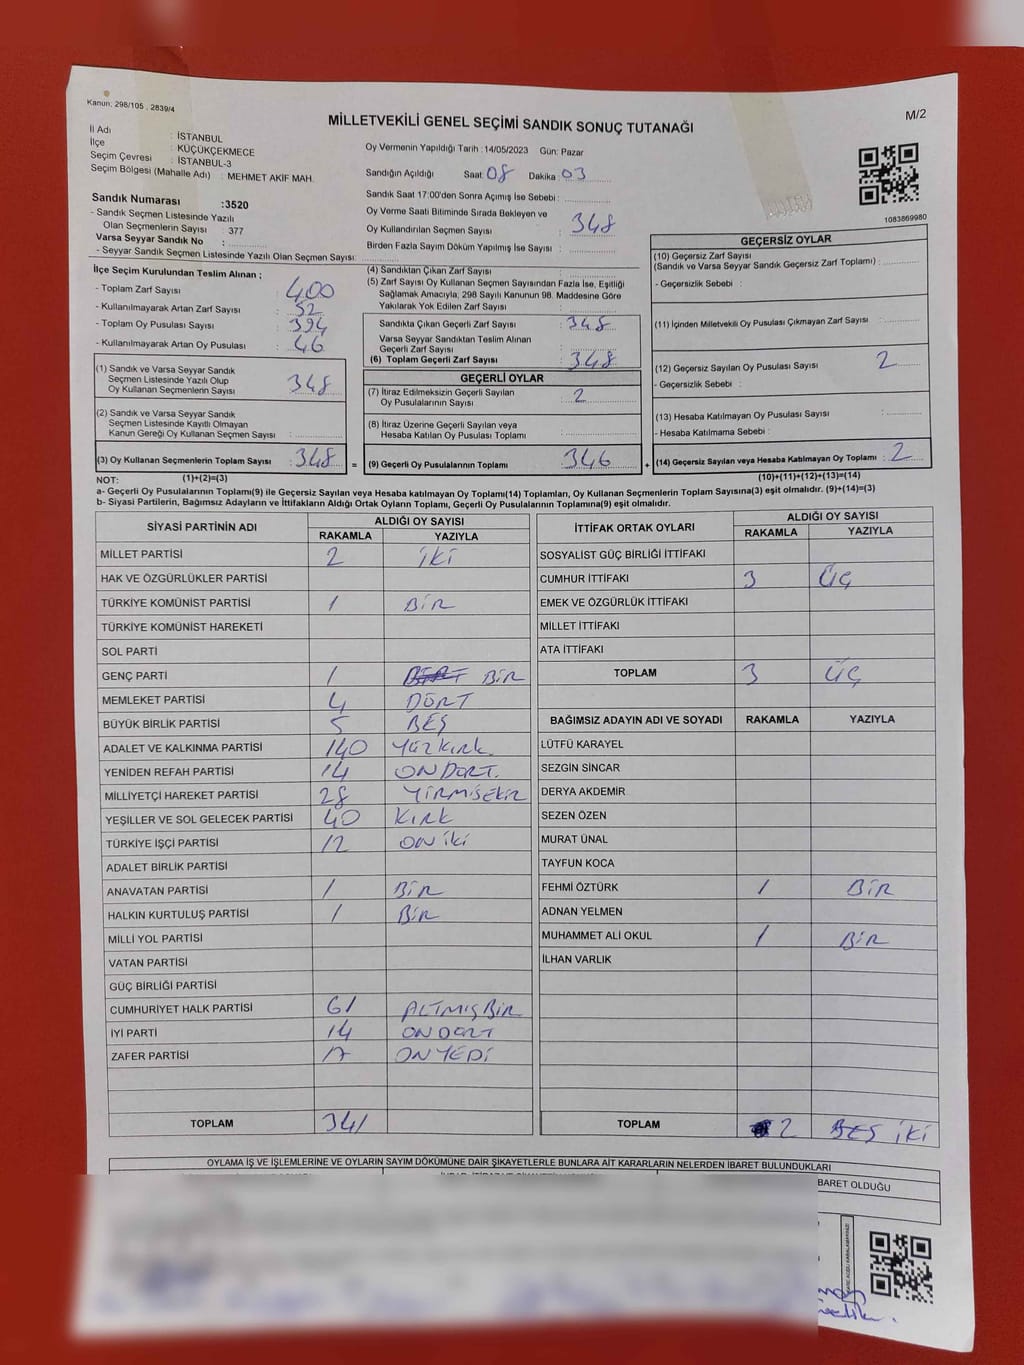 Kanun: 298/105 , 2839/4
M/2
MİLLETVEKİLİ GENEL SEÇİMİ SANDIK SONUÇ TUTANAĞI
İl Adı : İSTANBUL
İlçe : KÜÇÜKÇEKMECE
Seçim Çevresi : İSTANBUL-3
Seçim Bölgesi (Mahalle Adı) : MEHMET AKİF MAH.
Oy Vermenin Yapıldığı Tarih :14/05/2023 Gün: Pazar
Sandığın Açıldığı Saat 08 Dakika 03
Sandık Saat 17:00'den Sonra Açımış İse Sebebi :
Oy Verme Saati Bitiminde Sırada Bekleyen ve
Oy Kullandırılan Seçmen Sayısı : 348
Birden Fazla Sayım Döküm Yapılmış İse Sayısı :
1083869980
Sandık Numarası :3520
- Sandık Seçmen Listesinde Yazılı
Olan Seçmenlerin Sayısı : 377
Varsa Seyyar Sandık No :
- Seyyar Sandık Seçmen Listesinde Yazılı Olan Seçmen Sayısı:
İlçe Seçim Kurulundan Teslim Alınan ;
- Toplam Zarf Sayısı : 400
- Kullanılmayarak Artan Zarf Sayısı : 52
- Toplam Oy Pusulası Sayısı : 394
- Kullanılmayarak Artan Oy Pusulası : 46
(1) Sandık ve Varsa Seyyar Sandık
Seçmen Listesinde Yazılı Olup
Oy Kullanan Seçmenlerin Sayısı : 348
(2) Sandık ve Varsa Seyyar Sandık
Seçmen Listesinde Kayıtlı Olmayan
Kanun Gereği Oy Kullanan Seçmen Sayısı :
(3) Oy Kullanan Seçmenlerin Toplam Sayısı : 348
(4) Sandıktan Çıkan Zarf Sayısı :
(5) Zarf Sayısı Oy Kullanan Seçmen Sayısından Fazla İse, Eşitliği
Sağlamak Amacıyla; 298 Sayılı Kanunun 98. Maddesine Göre
Yakılarak Yok Edilen Zarf Sayısı :
Sandıkta Çıkan Geçerli Zarf Sayısı : 348
Varsa Seyyar Sandıktan Teslim Alınan
Geçerli Zarf Sayısı :
(6) Toplam Geçerli Zarf Sayısı : 348
GEÇERLİ OYLAR
(7) İtiraz Edilmeksizin Geçerli Sayılan
Oy Pusulalarının Sayısı : 2
(8) İtiraz Üzerine Geçerli Sayılan veya
Hesaba Katılan Oy Pusulası Toplamı :
= (9) Geçerli Oy Pusulalarının Toplamı : 346
GEÇERSİZ OYLAR
(10) Geçersiz Zarf Sayısı
(Sandık ve Varsa Seyyar Sandık Geçersiz Zarf Toplamı) :
- Geçersizlik Sebebi :
(11) İçinden Milletvekili Oy Pusulası Çıkmayan Zarf Sayısı :
(12) Geçersiz Sayılan Oy Pusulası Sayısı : 2
- Geçersizlik Sebebi :
(13) Hesaba Katılmayan Oy Pusulası Sayısı :
- Hesaba Katılmama Sebebi :
+ (14) Geçersiz Sayılan veya Hesaba Katılmayan Oy Toplamı : 2
NOT: (1)+(2)=(3) (10)+(11)+(12)+(13)=(14)
a- Geçerli Oy Pusulalarının Toplamı(9) ile Geçersiz Sayılan veya Hesaba katılmayan Oy Toplamı(14) Toplamları, Oy Kullanan Seçmenlerin Toplam Sayısına(3) eşit olmalıdır. (9)+(14)=(3)
b- Siyasi Partilerin, Bağımsız Adayların ve İttifakların Aldığı Ortak Oyların Toplamı, Geçerli Oy Pusulalarının Toplamına(9) eşit olmalıdır.
SİYASİ PARTİNİN ADI ALDIĞI OY SAYISI
RAKAMLA YAZIYLA
MİLLET PARTİSİ 2 İKİ
HAK VE ÖZGÜRLÜKLER PARTİSİ
TÜRKİYE KOMÜNİST PARTİSİ 1 BİR
TÜRKİYE KOMÜNİST HAREKETİ
SOL PARTİ
GENÇ PARTİ 1 BİR
MEMLEKET PARTİSİ 4 DÖRT
BÜYÜK BİRLİK PARTİSİ 5 BEŞ
ADALET VE KALKINMA PARTİSİ 140 YÜZKIRK
YENİDEN REFAH PARTİSİ 14 ONDÖRT.
MİLLİYETÇİ HAREKET PARTİSİ 28 YİRMİSEKİZ
YEŞİLLER VE SOL GELECEK PARTİSİ 40 KIRK
TÜRKİYE İŞÇİ PARTİSİ 12 ONİKİ
ADALET BİRLİK PARTİSİ
ANAVATAN PARTİSİ 1 BİR
HALKIN KURTULUŞ PARTİSİ 1 BİR
MİLLİ YOL PARTİSİ
VATAN PARTİSİ
GÜÇ BİRLİĞİ PARTİSİ
CUMHURİYET HALK PARTİSİ 61 ALTMIŞBİR
İYİ PARTİ 14 ONDÖRT
ZAFER PARTİSİ 17 ONYEDİ
TOPLAM 341
İTTİFAK ORTAK OYLARI ALDIĞI OY SAYISI
RAKAMLA YAZIYLA
SOSYALİST GÜÇ BİRLİĞİ İTTİFAKI
CUMHUR İTTİFAKI 3 ÜÇ
EMEK VE ÖZGÜRLÜK İTTİFAKI
MİLLET İTTİFAKI
ATA İTTİFAKI
TOPLAM 3 ÜÇ
BAĞIMSIZ ADAYIN ADI VE SOYADI RAKAMLA YAZIYLA
LÜTFÜ KARAYEL
SEZGİN SİNCAR
DERYA AKDEMİR
SEZEN ÖZEN
MURAT ÜNAL
TAYFUN KOCA
FEHMİ ÖZTÜRK 1 BİR
ADNAN YELMEN
MUHAMMET ALİ OKUL 1 BİR
İLHAN VARLIK
TOPLAM 2 BEŞ İKİ
OYLAMA İŞ VE İŞLEMLERİNE VE OYLARIN SAYIM DÖKÜMÜNE DAİR ŞİKAYETLERLE BUNLARA AİT KARARLARIN NELERDEN İBARET BULUNDUKLARI
BARET OLDUĞU